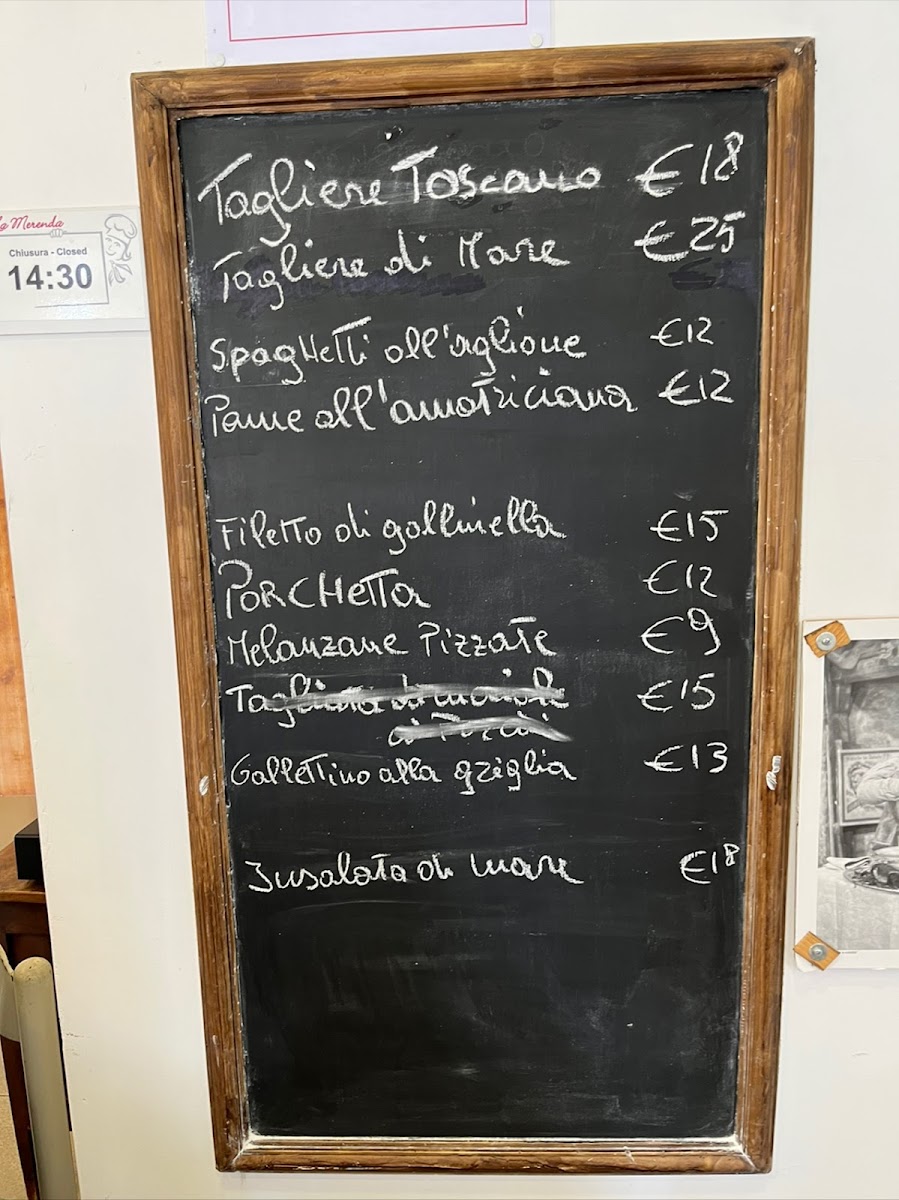 La Merenda
Chiusura - Closed
14:30
Tagliere Toscano €18
Tagliere di Mare €25
Spaghetti all'aglione €12
Penne all'amatriciana €12
Filetto di gallinella €15
PORCHETTA €12
Melanzane Pizzate €9
Tagliata di maiale €15
ai Porcini
Gallettino alla griglia €13
Insalata di mare €18